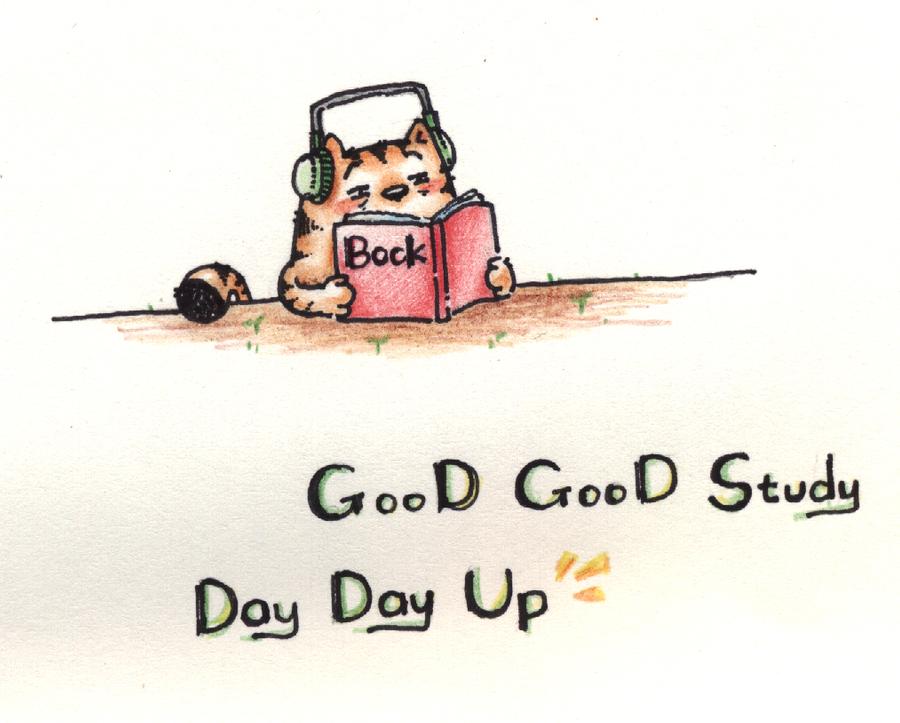 Bock
GooD GooD Study
Day Day Up